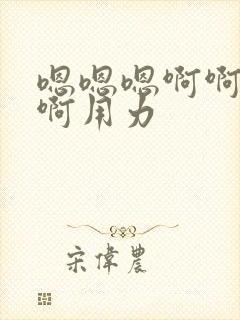 嗯嗯嗯啊啊
啊用力
宋偉農